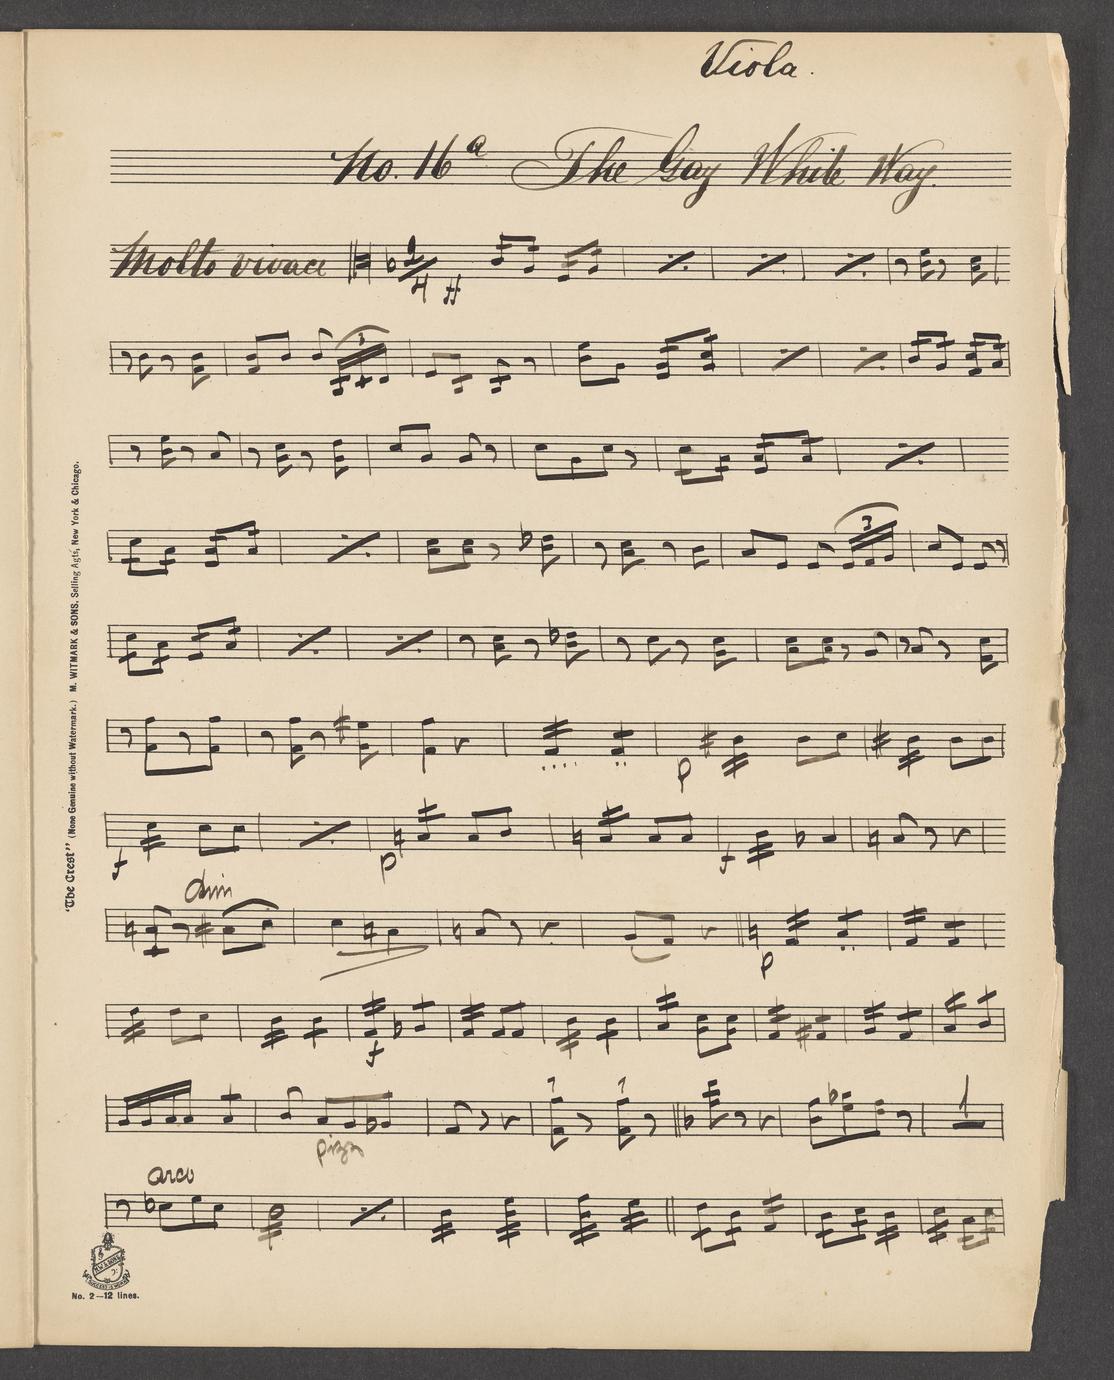 Viola.
No. 16a The Gay White Way.
Molto vivace
2/4 ff
3
3
p
f p f
dim
p
f
pizz
arco
"The Crest" (None Genuine without Watermark.) M. WITMARK & SONS, Selling Agts, New York & Chicago.
No. 2—12 lines.